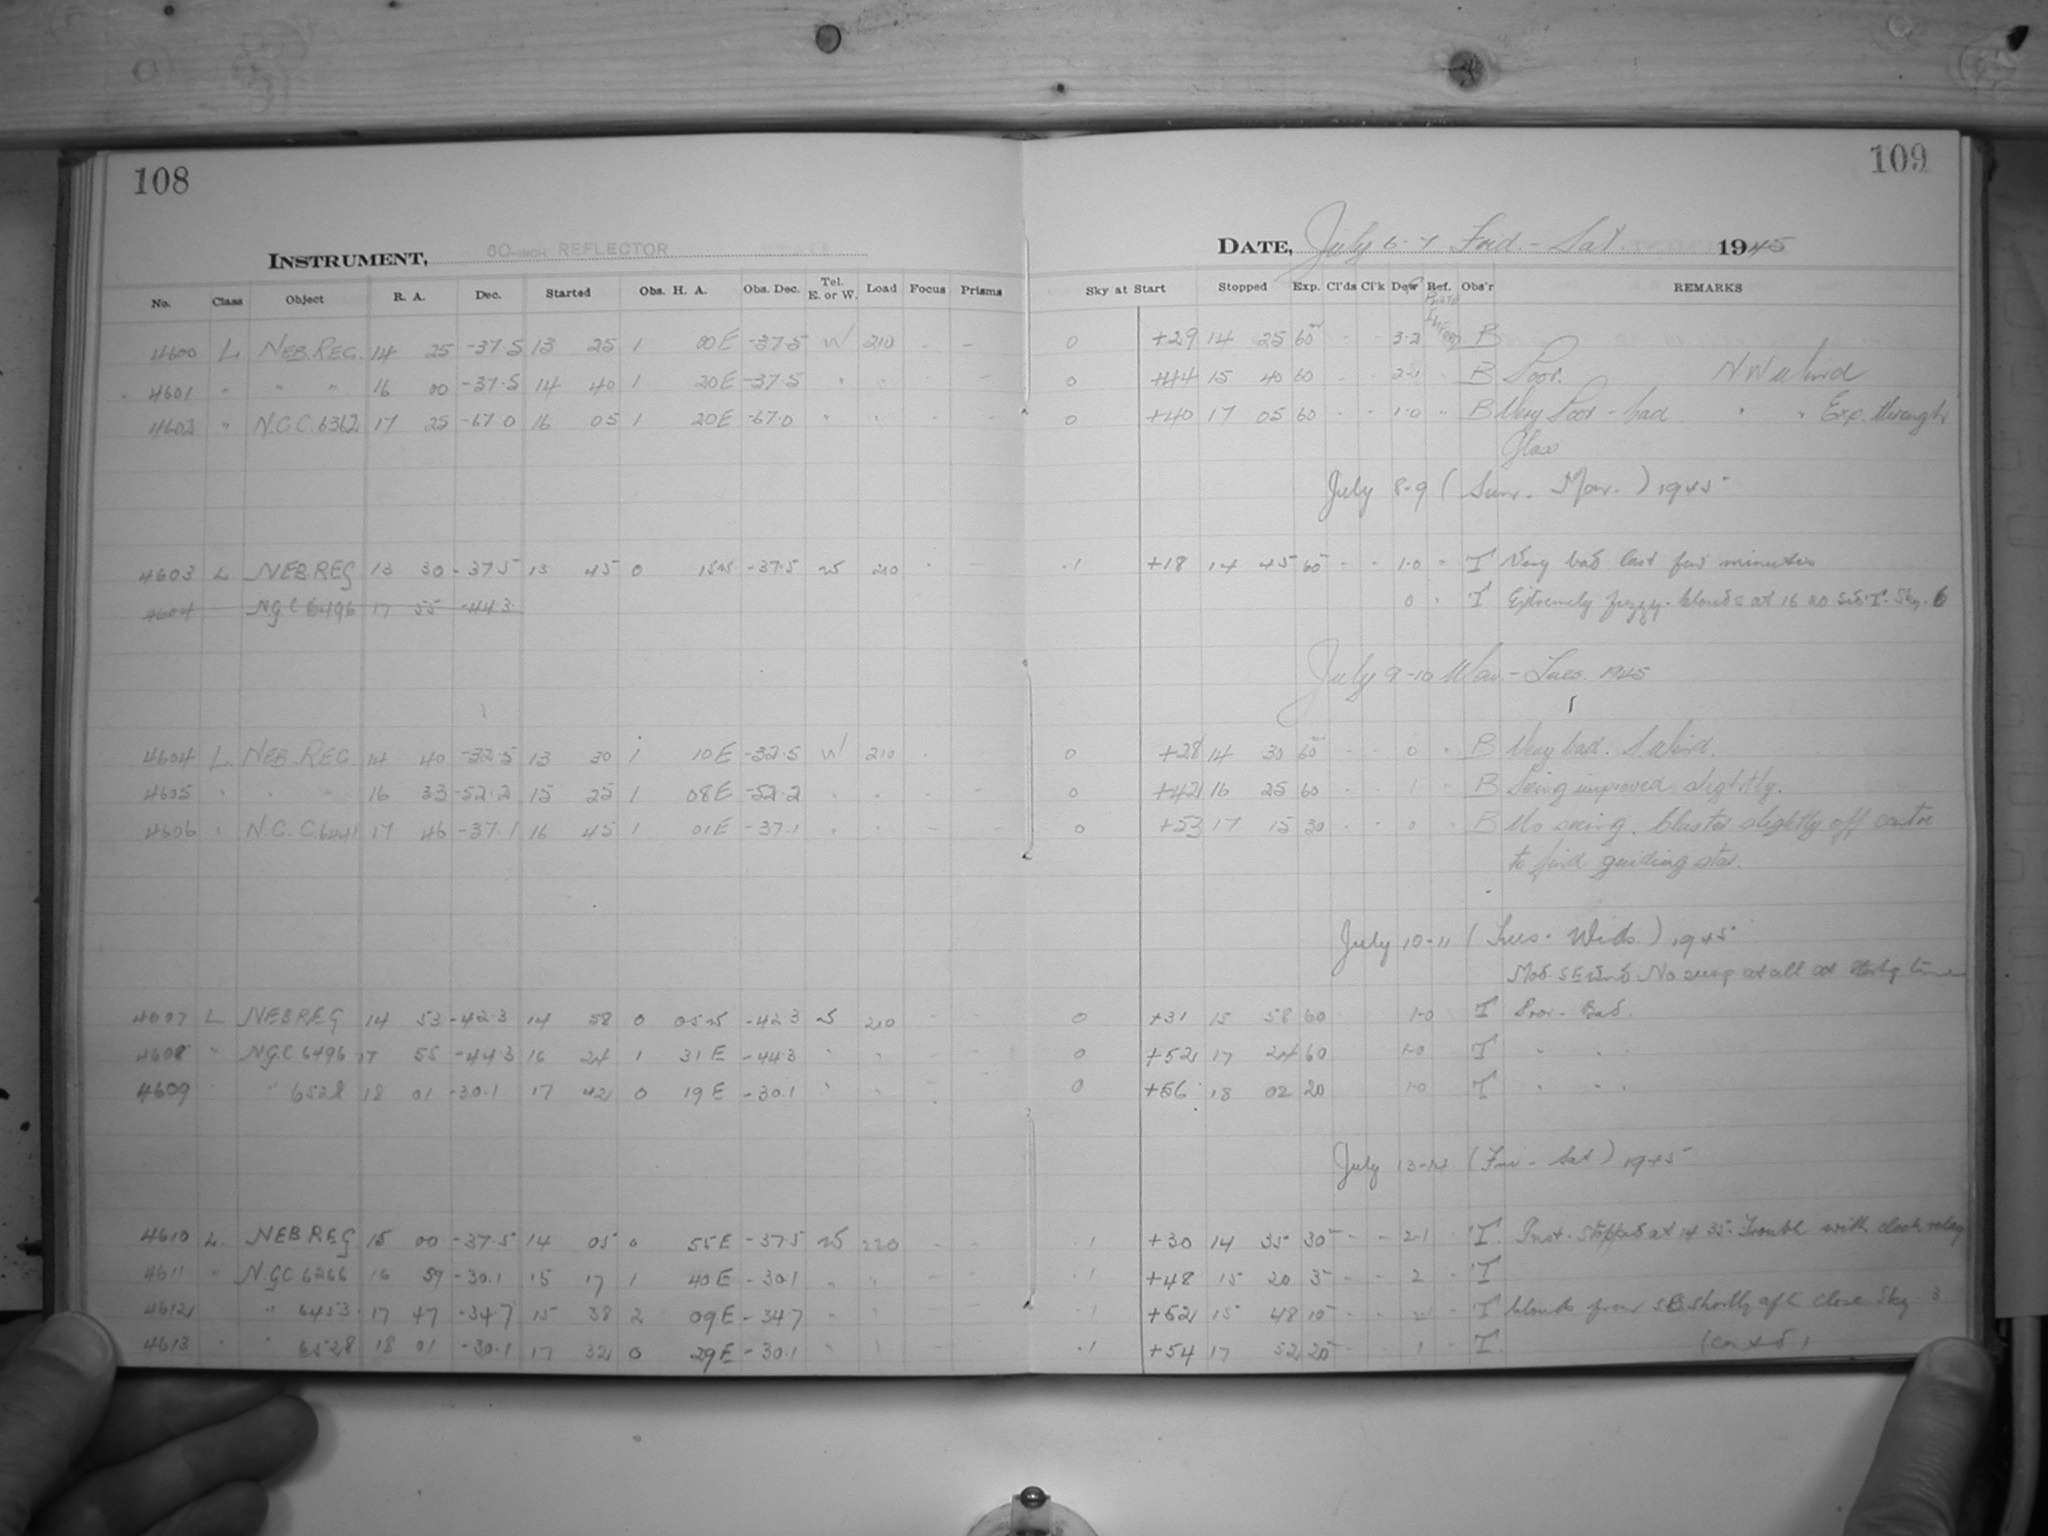 108
109
INSTRUMENT, 60-INCH REFLECTOR
DATE, July 6-7 Frid. - Sat. 1945
No. Class Object R. A. Dec. Started Obs. H. A. Obs. Dec. Tel. E. or W. Load Focus Prisms Sky at Start Stopped Exp. Cl'ds Cl'k Dew Ref. Obs'r REMARKS
4600 L NEB.REG. 14 25 -37.5 13 25 1 00E -37.5 W 210 - - 0 +29 14 25 60 - - 3-2 B
4601 " " " 16 00 -37.5 14 40 1 20E -37.5 " " - - 0 +44 15 40 60 - - 2-1 " B Poor. N W Wind
4602 " N.G.C.6362 17 25 -67.0 16 05 1 20E -67.0 " " - - 0 +40 17 05 60 - - 1-0 " B Very Poor - bad " " Exp. through
Glass
July 8-9 (Sun. - Mon.) 1945
4603 L NEBREG 13 30 -37.5 13 45 0 15W -37.5 W 210 - - .1 +18 14 45 60 - - 1-0 " T Very bad last few minutes
4604 NGC 6496 17 55 -44.3 0 " T Extremely fuzzy. Clouds at 16 20 Sid.T. Sky. 6
July 9-10 Mon. - Tues. 1945
4604 L. NEB.REG. 14 40 -32.5 13 30 1 10E -32.5 W 210 - 0 +28 14 30 60 - - 0 " B Very bad. S. Wind.
4605 " " " 16 33 -52.2 15 25 1 08E -52.2 " " - - 0 +42 16 25 60 - - 1 " B Seeing improved slightly.
4606 " N.G.C.6441 17 46 -37.1 16 45 1 01E -37.1 " " - - 0 +53 17 15 30 - - 0 " B No seeing. Cluster slightly off centre
to find guiding star.
July 10-11 (Tues. - Weds) 1945
Mod. S E wind No seeing at all at time
4607 L NEBREG 14 53 -42.3 14 58 0 05W -42.3 W 210 0 +31 15 58 60 1-0 T Poor - Bad.
4608 " NGC 6496 17 55 -44.3 16 24 1 31E -44.3 " " 0 +52 17 24 60 1-0 T " " "
4609 " 6528 18 01 -30.1 17 42 0 19E -30.1 " " 0 +56 18 02 20 1-0 T " " "
July 13-14 (Fri - Sat) 1945
4610 L. NEBREG 15 00 -37.5 14 05 0 55E -37.5 W 220 - - .1 +30 14 35 30 - - 2-1 T. Inst. stopped at 14 35. Trouble with clock relay
4611 " NGC 6266 16 59 -30.1 15 17 1 40E -30.1 " " - - .1 +48 15 20 3 - - 2 - T
4612 " 6453 17 47 -34.7 15 38 2 09E -34.7 " " .1 +52 15 48 10 - - T Clouds from SE shortly aft close Sky 3
4613 " " 6528 18 01 -30.1 17 32 0 29E -30.1 " " - .1 +54 17 52 20 - - 1 - T. (Contd)